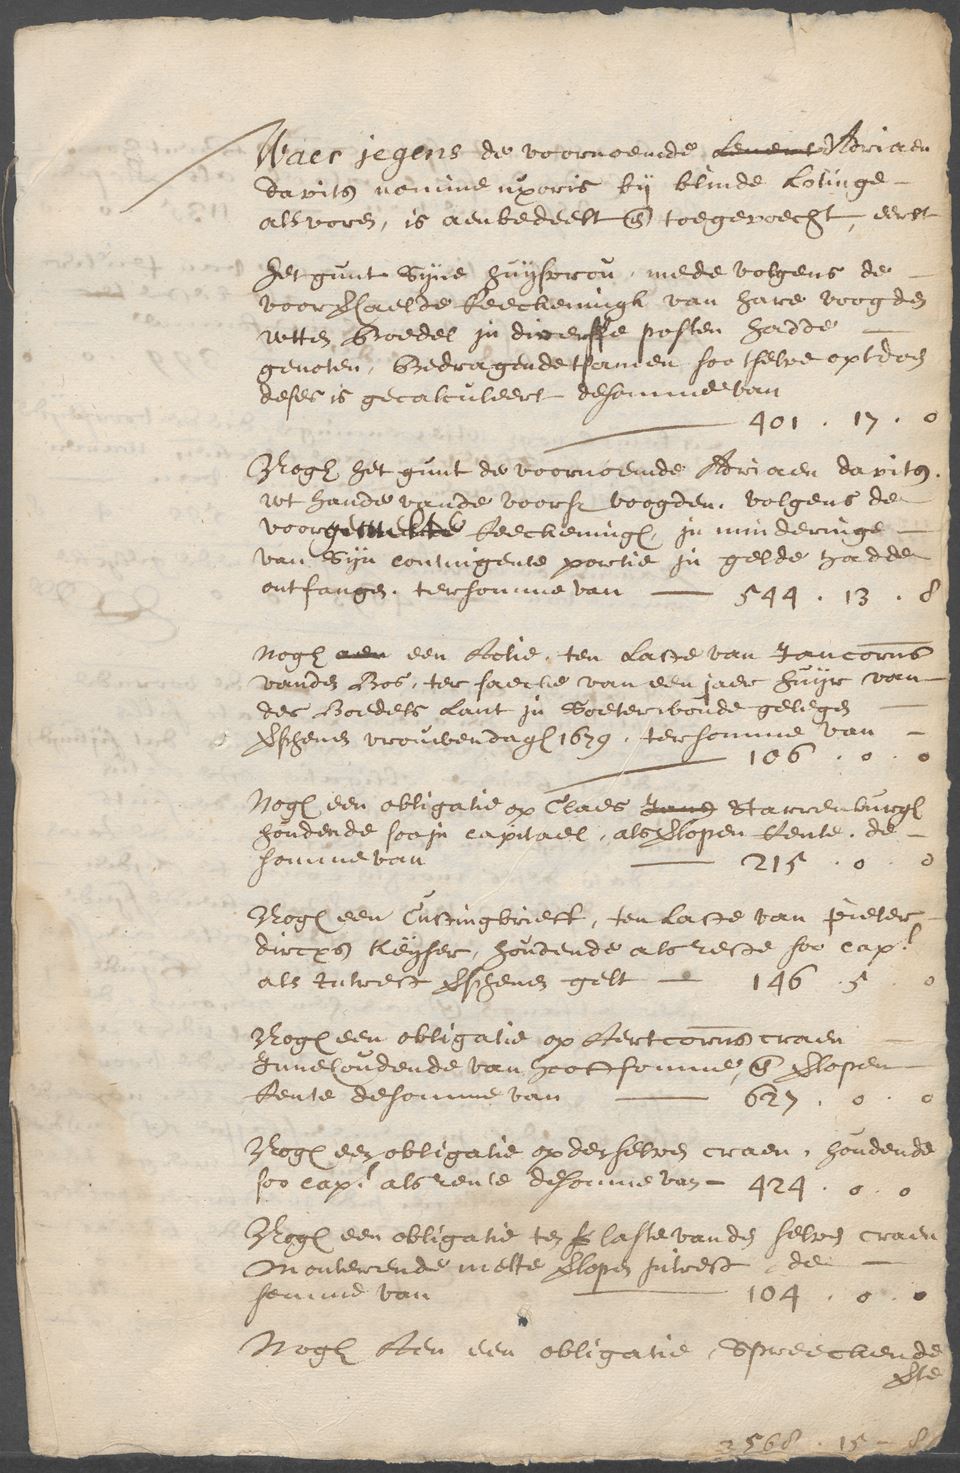 Waer jegens de voornoemde Adriaen
davits nomine uxoris bij blinde Lotinge
als vooren, is aenbedeelt en toegevoecht, eerst
het gunt Sijne huijsvrou, mede volgens de
voorverhaelde Reeckeningh van hare voogden
utten Boedel in diverse posten hadde
genoten, Bedragende tsamen soo tselve opt dos
deses is gecalculeert de somme van
401 . 17 . 0
Nogh het gunt de voornoemde Adriaen davits
ut hande vande voors voogden, volgens de
voorgemelte Reeckeningh, in minderinge
van Sijn contingente portie in gelde hadde
ontfangen, ter somme van 544 . 13 . 8
Nogh een Actie, ten Laste van Jan Corns
vanden Bos, ter saecke van een jaer huijr van
des Boedels Lant in Soeterwoude gelegen
verschenen vrouwendagh 1679, ter somme van
106 . 0 . 0
Nogh een obligatie op Claes Starrenburgh
houdende soo in capitael, als verlopen Rente, de
somme van 215 . 0 . 0
Nogh een Custingbrieff, ten Laste van Pieter
dircxs Keijser, houdende als reste soo capl
als Intrest verschenen gelt 146 . 5 . 0
Nogh een obligatie op Aert Corns craen
Innehoudende van hooftsomme, en verlopen
Rente de somme van 627 . 0 . 0
Nogh een obligatie op denselven craen, houdende
soo capl als rente de somme van 424 . 0 . 0
Nogh een obligatie ten laste vanden selven craen
Monterende mette verlopen intrest de
somme van 104 . 0 . 0
Nogh Aen een obligatie, Spreeckende
2568 . 15 - 8